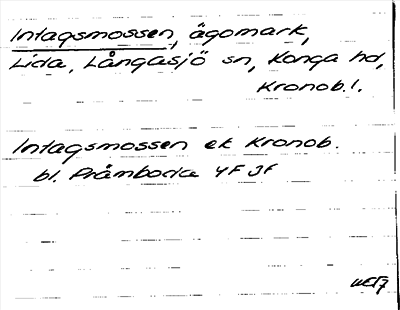 Intagsmossen, ägomark,
Lida, Långasjö sn, Konga hd,
Kronob. l.
Intagsmossen ek Kronob.
bl. Fråmboda 4F 3f